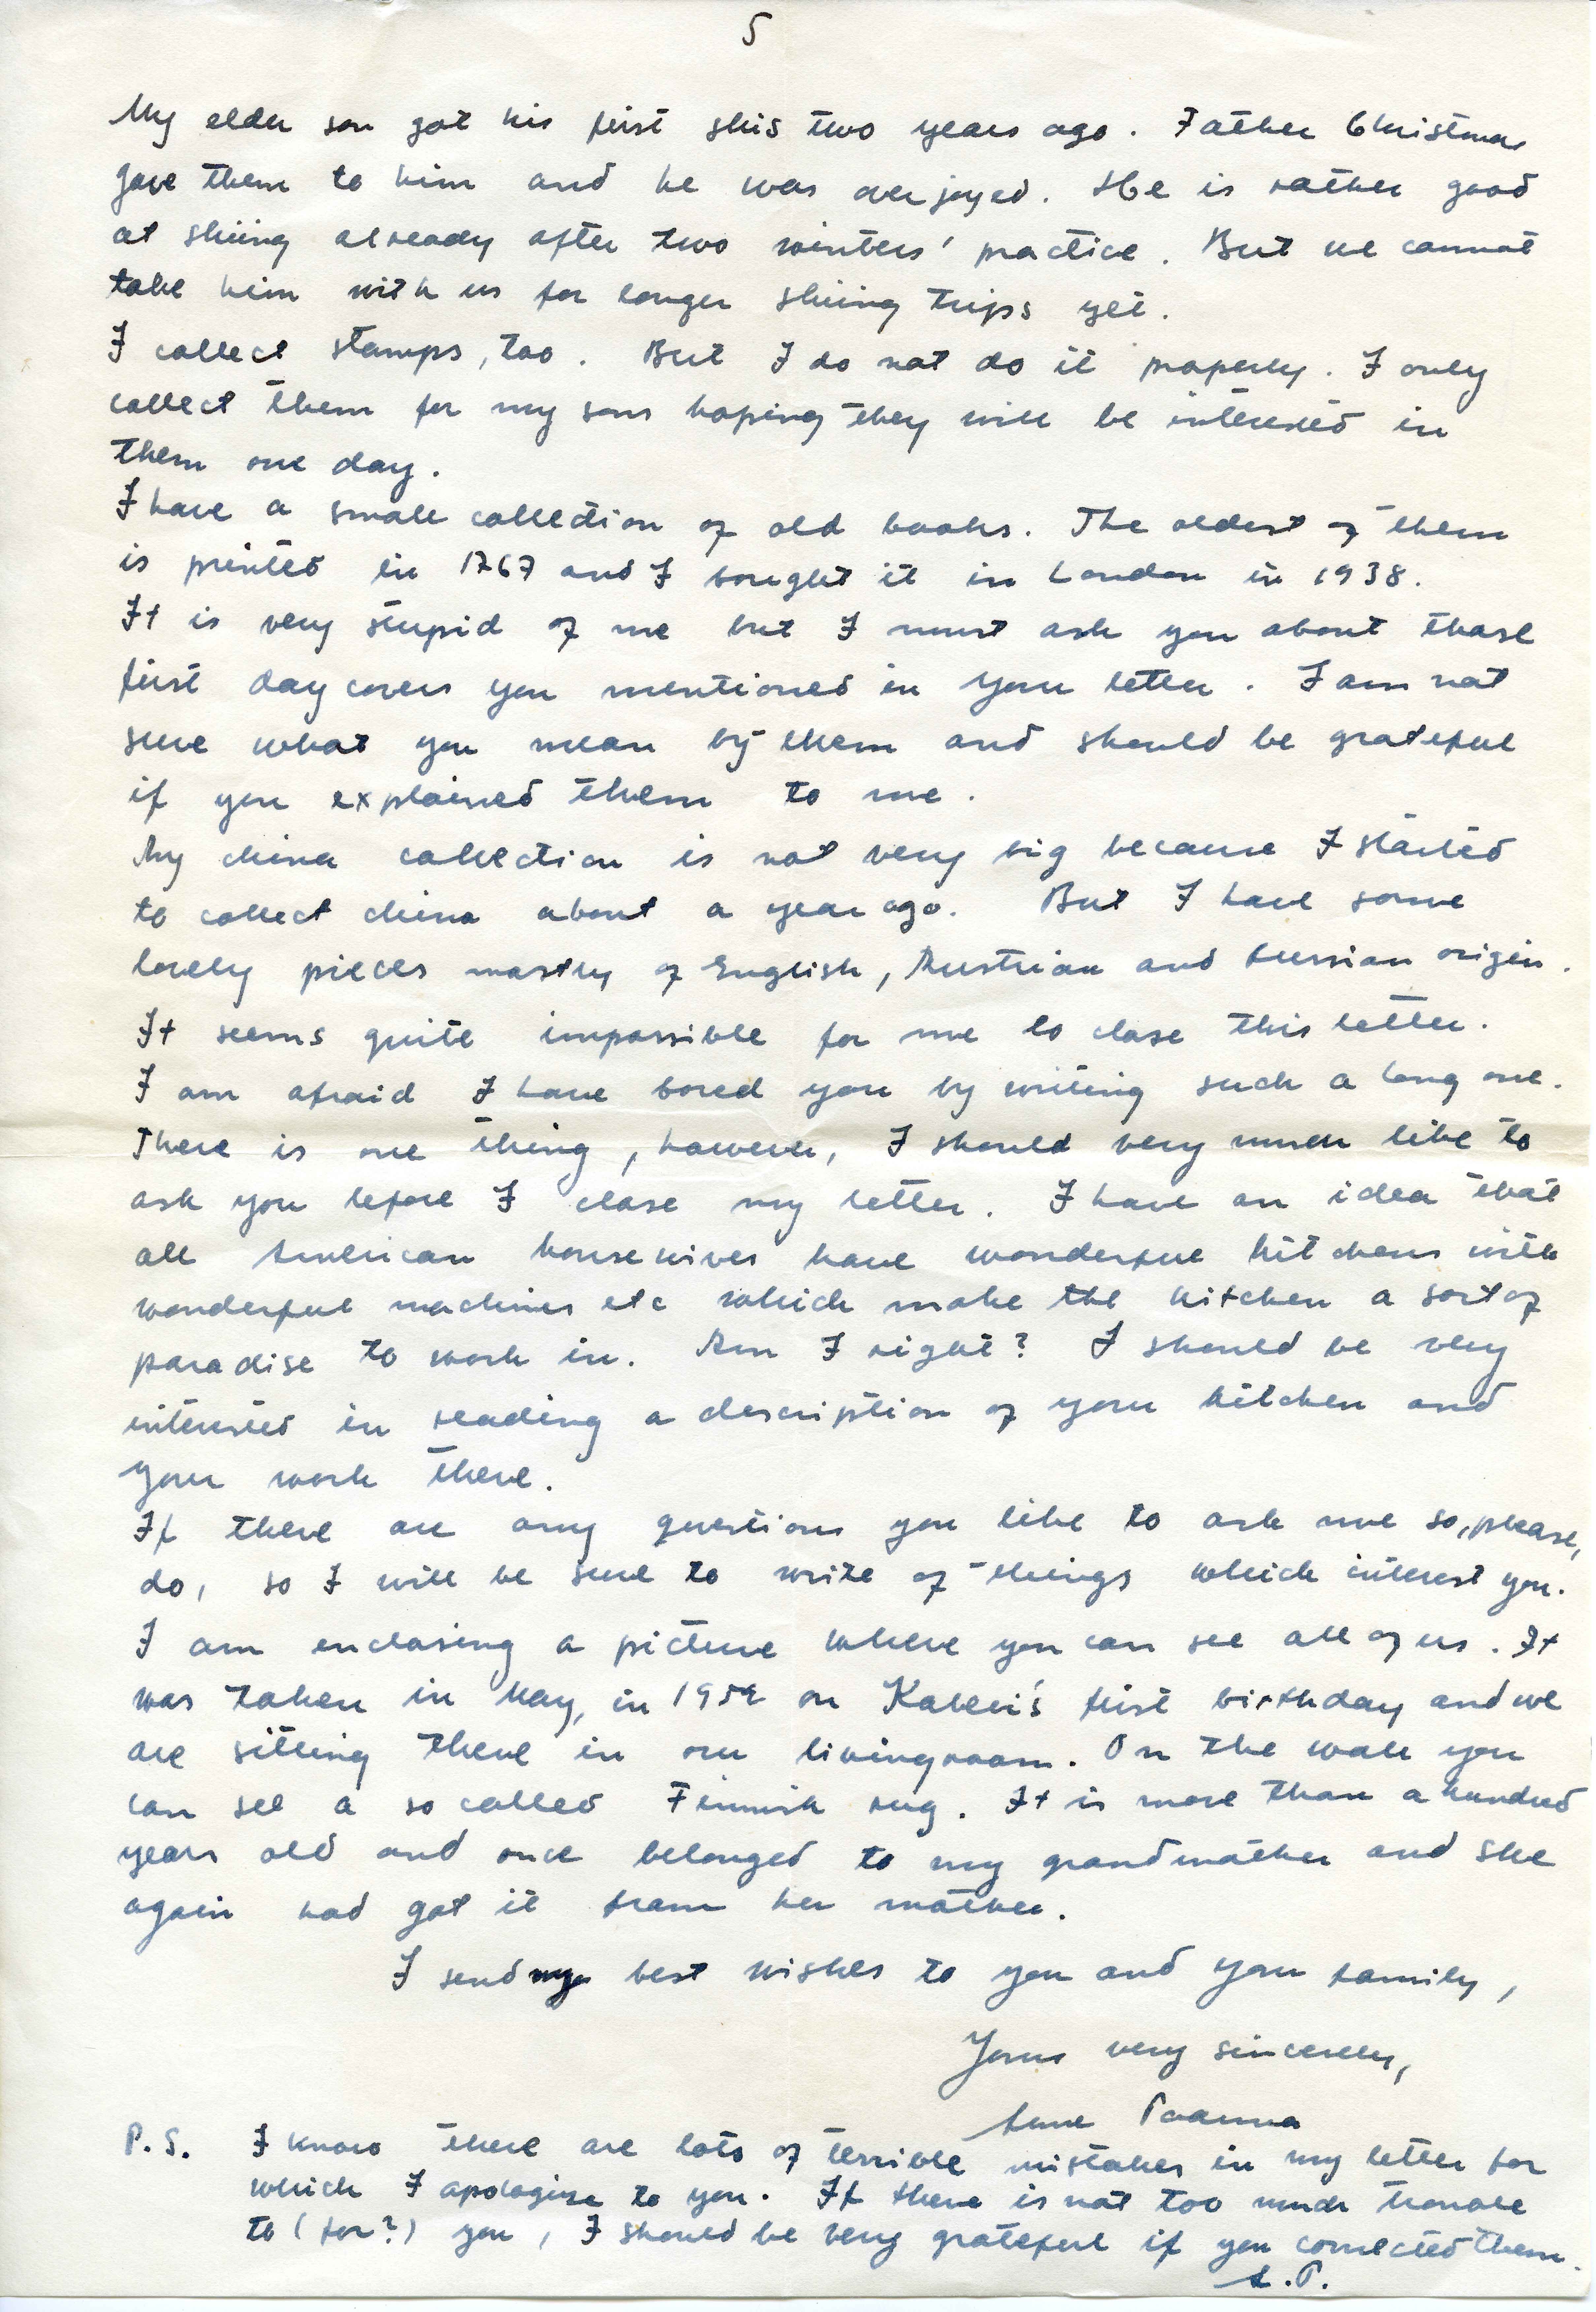 5
My elder son got his first skis two years ago. Father Christmas
gave them to him and he was overjoyed. He is rather good
at skiing already after two winters' practice. But we cannot
take him with us for longer skiing trips yet.
I collect stamps, too. But I do not do it properly. I only
collect them for my sons hoping they will be interested in
them one day.
I have a small collection of old books. The oldest of them
is printed in 1767 and I bought it in London in 1938.
It is very stupid of me but I must ask you about those
first day covers you mentioned in your letter. I am not
sure what you mean by them and should be grateful
if you explained them to me.
My china collection is not very big because I started
to collect china about a year ago. But I have some
lovely pieces mostly of English, Austrian and Russian origin.
It seems quite impossible for me to close this letter.
I am afraid I have bored you by writing such a long one.
There is one thing, however, I should very much like to
ask you before I close my letter. I have an idea that
all American housewives have wonderful kitchens with
wonderful machines etc which make the kitchen a sort of
paradise to work in. Am I right? I should be very
interested in reading a description of your kitchen and
your work there.
If there are any questions you like to ask me so, please,
do, so I will be sure to write of things which interest you.
I am enclosing a picture where you can see all of us. It
was taken in May, in 1959 on Kalevi's first birthday and we
are sitting there in our livingroom. On the wall you
can see a so called Finnish rug. It is more than a hundred
years old and once belonged to my grandmother and she
again had got it from her mother.
I send my best wishes to you and your family,
Yours very sincerely,
P.S. I know there are lots of terrible mistakes in my letter for
which I apologize to you. If there is not too much trouble
to (for?) you, I should be very grateful if you corrected them.